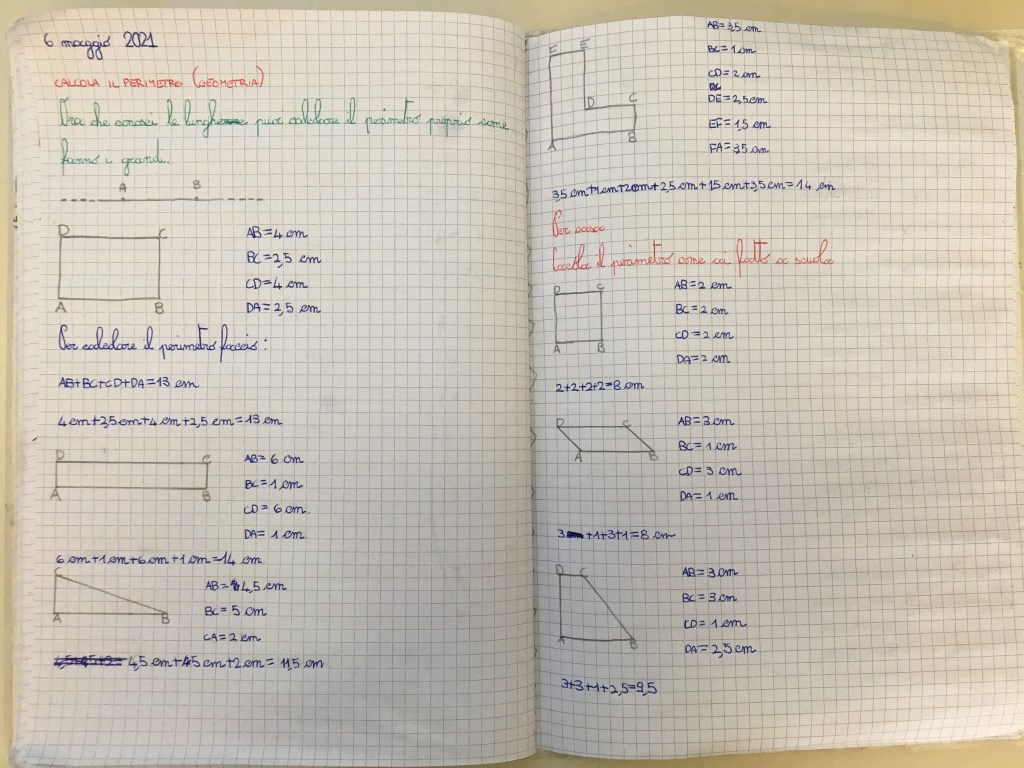 6 maggio 2021
CALCOLA IL PERIMETRO (GEOMETRIA)
Ora che conosci le lunghe puoi calcolare il perimetro proprio come
fanno i grandi.
A B
D C
A B
AB=4 cm
BC=2,5 cm
CD=4 cm
DA=2,5 cm
Per calcolare il perimetro faccio:
AB+BC+CD+DA=13 cm
4cm+2,5cm+4cm+2,5 cm=13 cm
D C
A B
AB=6 cm
BC=1 cm
CD=6 cm.
DA=1 cm
6cm+1cm+6cm+1cm=14 cm
C
A B
AB=4,5 cm
BC=5 cm
CA=2 cm
4,5 cm+ cm+2 cm= 11,5 cm
F E
D C
A B
AB=3,5 cm
BC=1 cm
CD=2 cm
DE=2,5cm
EF=1,5 cm
FA=3,5 cm
3,5cm+1cm+2cm+2,5cm+1,5cm+3,5cm=14 cm
Per casa
Calcola il perimetro come ai fatto a scuola
D C
A B
AB=2 cm
BC=2 cm
CD=2 cm
DA=2 cm
2+2+2+2=8 cm
D C
A B
AB=3 cm
BC=1 cm
CD=3 cm
DA=1 cm
3+1+3+1=8 cm
D C
A B
AB=3cm
BC=3cm
CD=1 cm
DA=2,5cm
3+3+1+2,5=9,5